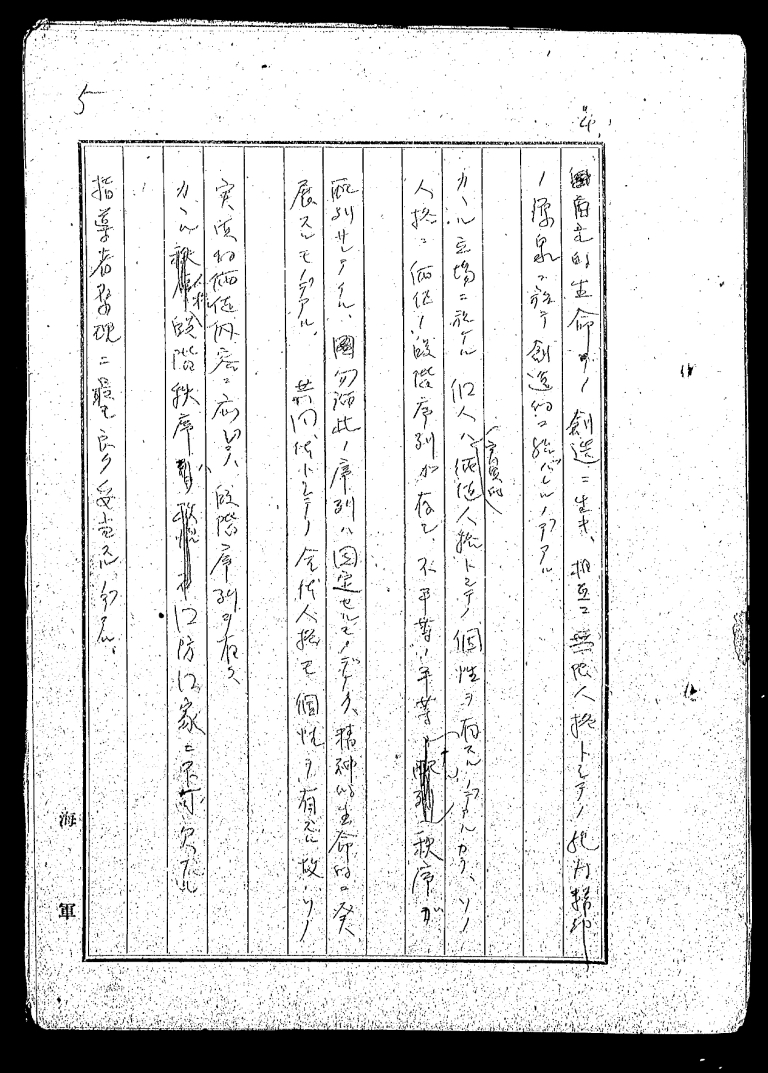 5
的生命ノ創造ニ生キ、相互ニ無限人格トシテノ絶対精神
ノ源泉ニ於テ創造的ニ結バレルノデアル
カヽル立場ニ於ケル個人ハ価値人格トシテノ個性ヲ有スルノデアルカラ、ソノ
実質的
人格ニ価値ノ段階序列ガ存シ、不平等ノ平等ナル秩序ガ
配列サレテイル、固ヨリ此ノ序列ハ固定セルモノデナク、精神的生命的ニ発
展スルモノデアル、共同体トシテノ全体人格モ個性ヲ有スル故、ソノ
実質的価値内容ニ応ジ、段階序列ヲ有ス
カヽル段階秩序国防国家ニ不可欠ナル
指導者発現ニ最モ良ク妥当スルノデアル、
海軍